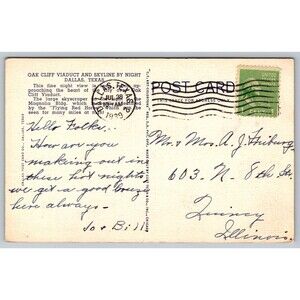 OAK CLIFF VIADUCT AND SKYLINE BY NIGHT
DALLAS, TEXAS
This fine night view is
proaching the heart of
Cliff Viaduct.
The large skyscraper
Magnolia Bldg. which
by the "Flying Red Horse"
seen for many miles at
DALLAS, TEXAS
JUL 28
AM
1939
POST CARD
THIS SPACE FOR ADDRESS ONLY
Hello Folks.
How are you
making out in
these hot nights
we get a good breeze
here always—
Jo & Bill
Mr. & Mrs. A. J. Freiburg
603- N- 8th St.
Quincy
Illinois.